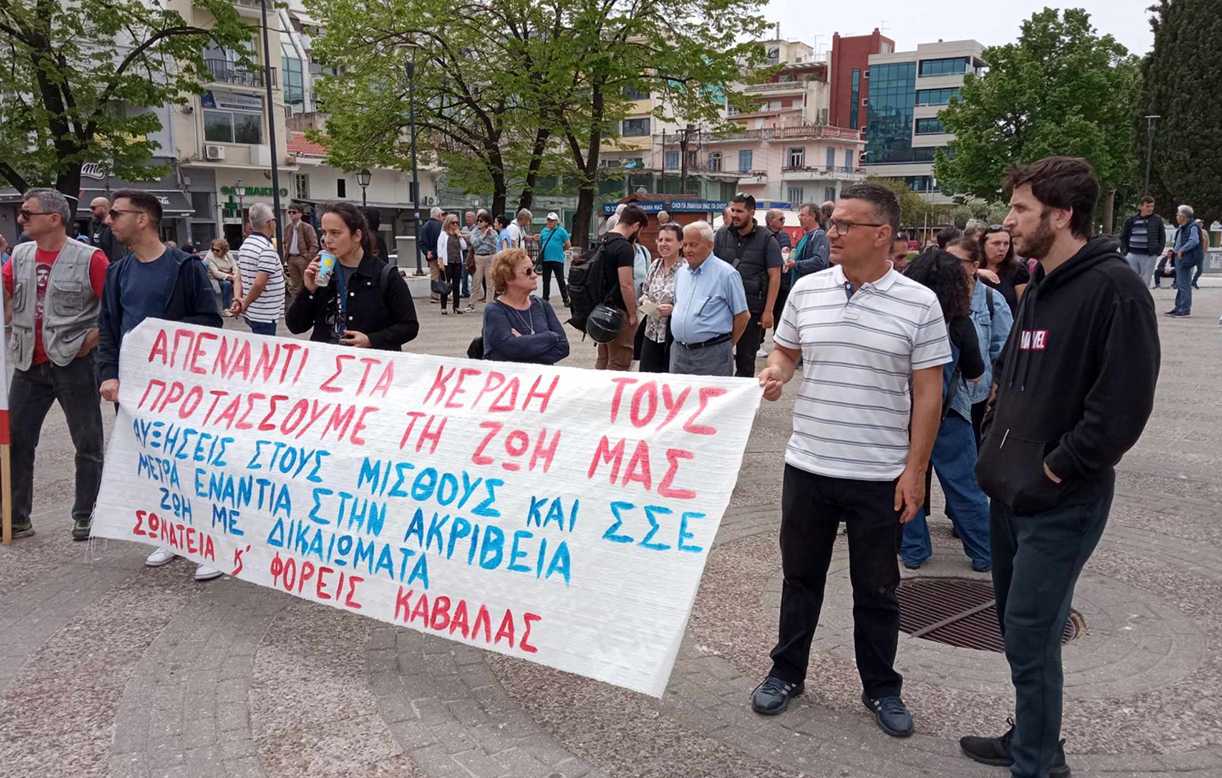 ΑΠΕΝΑΝΤΙ ΣΤΑ ΚΕΡΔΗ ΤΟΥΣ
ΠΡΟΤΑΣΣΟΥΜΕ ΤΗ ΖΩΗ ΜΑΣ
ΑΥΞΗΣΕΙΣ ΣΤΟΥΣ ΜΙΣΘΟΥΣ ΚΑΙ ΣΣΕ
ΜΕΤΡΑ ΕΝΑΝΤΙΑ ΣΤΗΝ ΑΚΡΙΒΕΙΑ
ΖΩΗ ΜΕ ΔΙΚΑΙΩΜΑΤΑ
ΣΩΜΑΤΕΙΑ Κ' ΦΟΡΕΙΣ ΚΑΒΑΛΑΣ
MARVEL